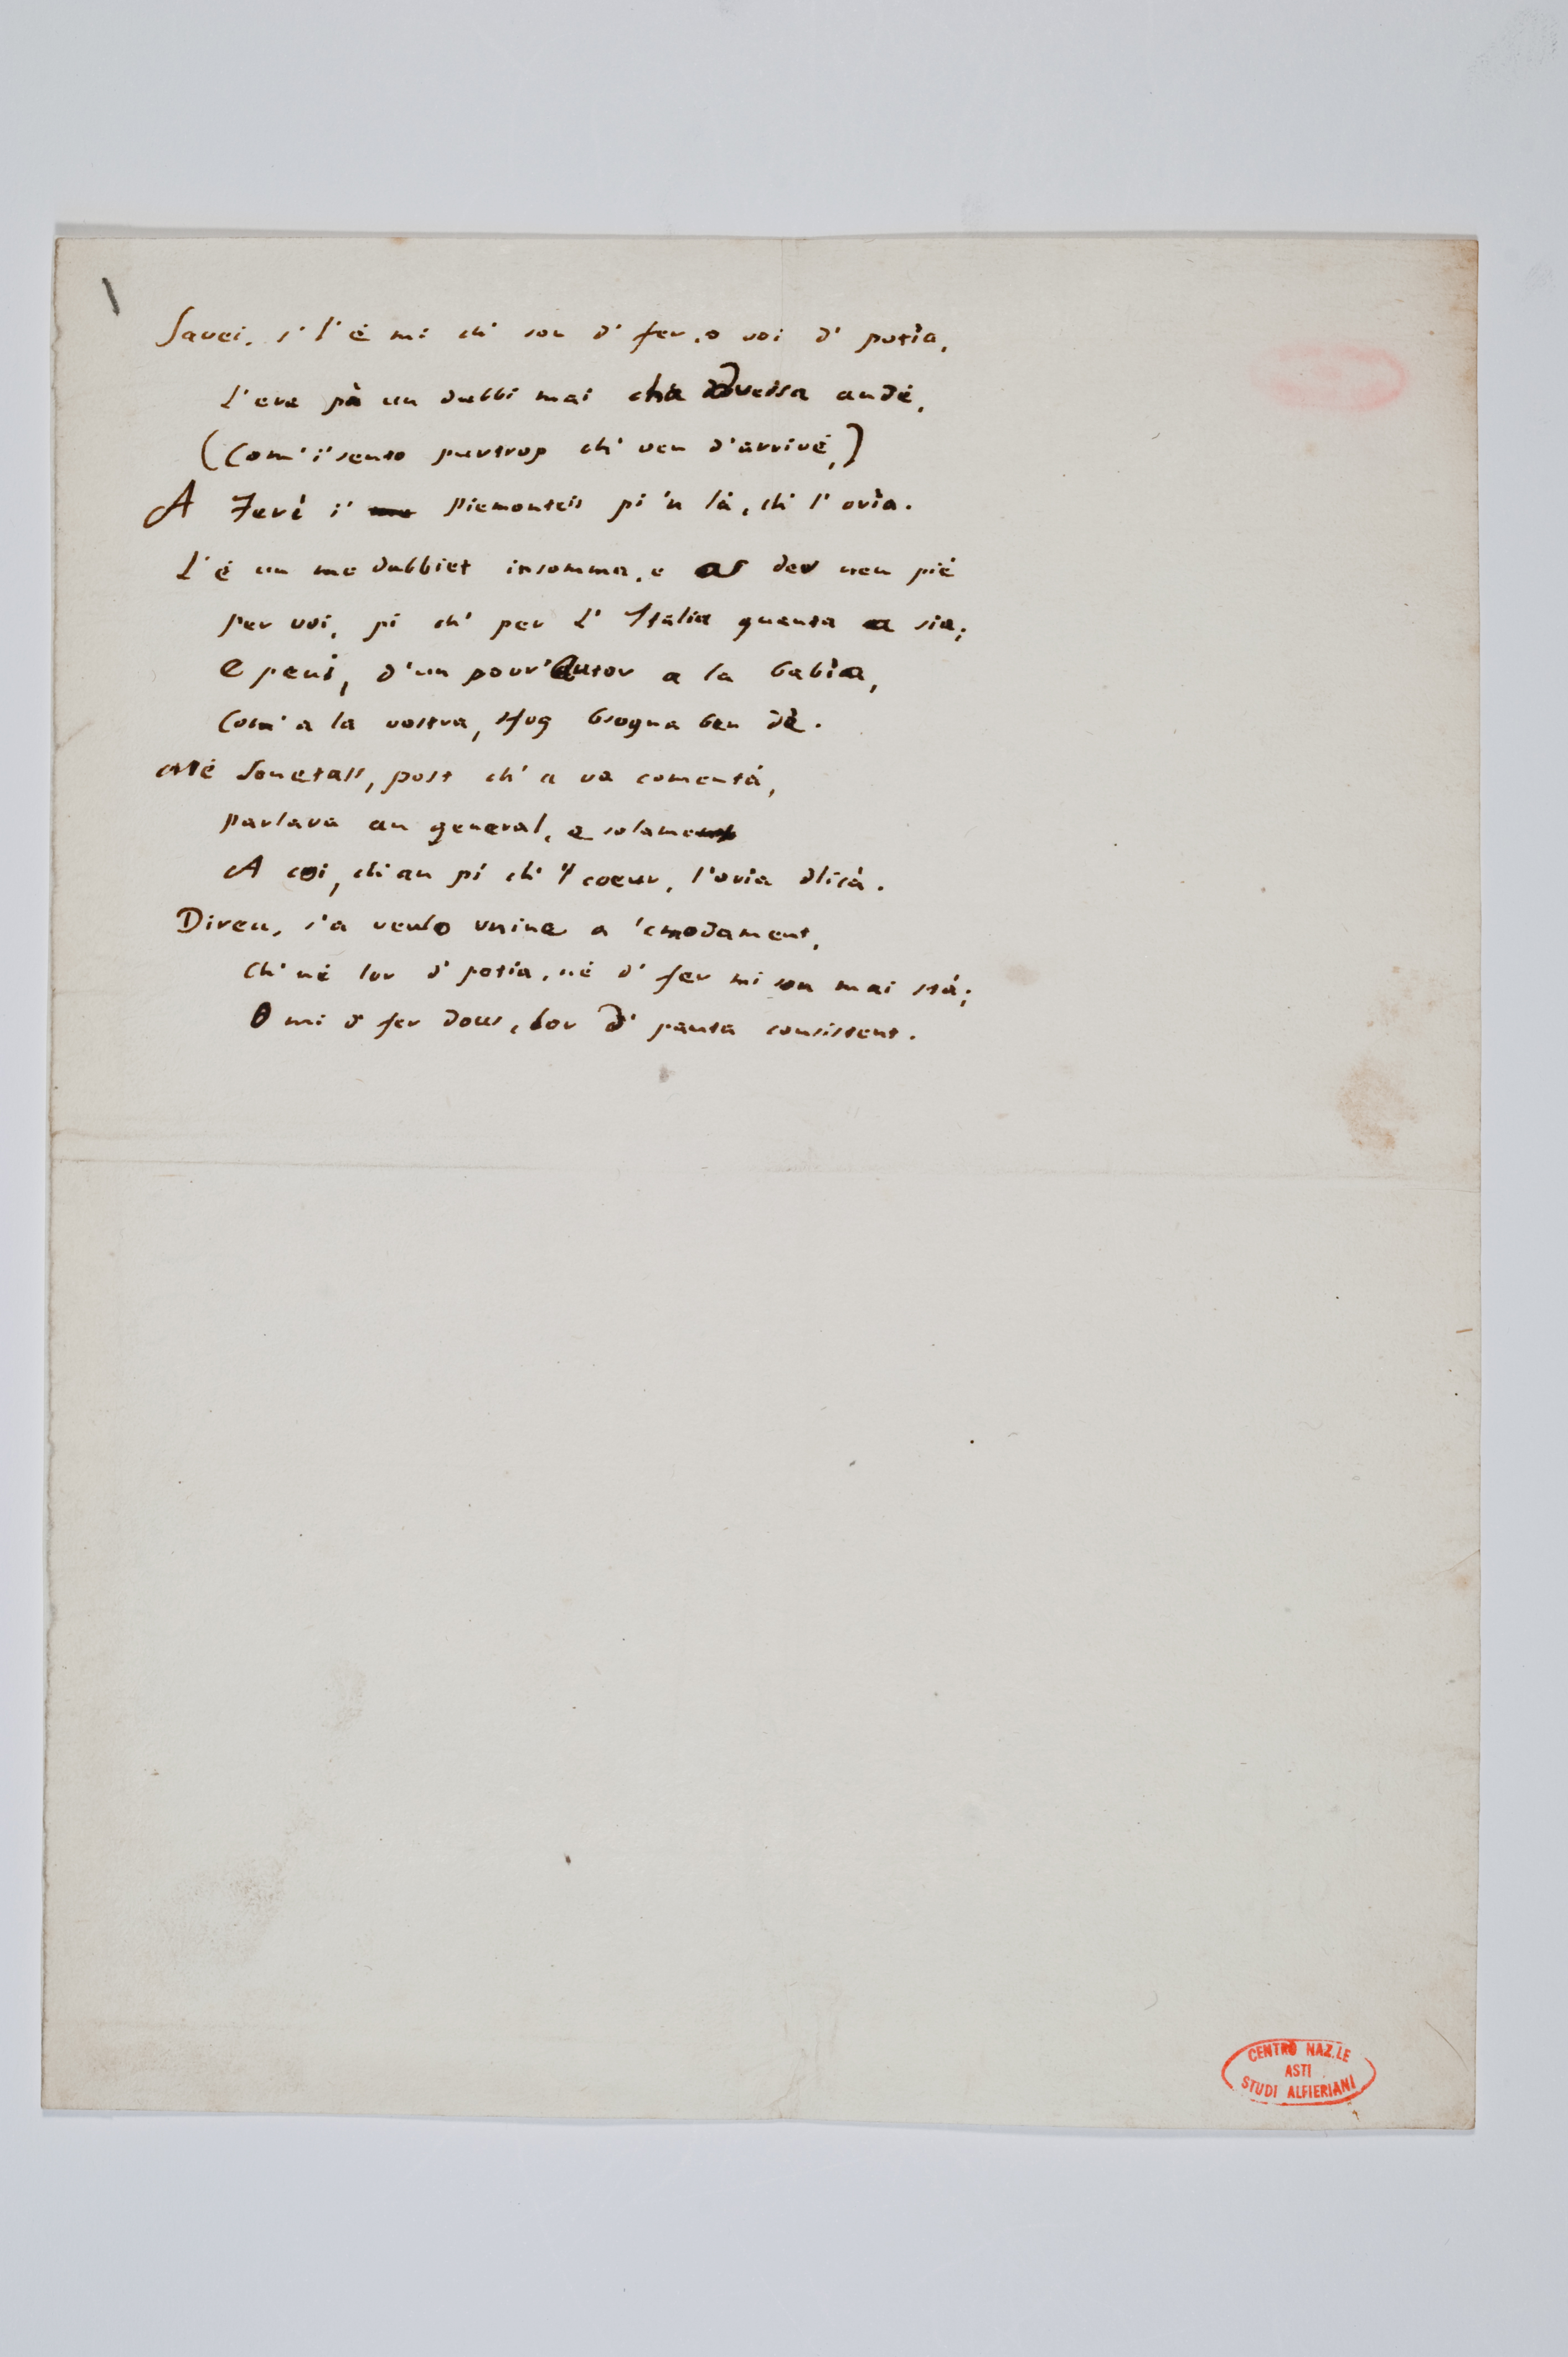 Savei, s' l'è mi ch' son d' fer, o voi d' potìa,
L'era pà un dubbi mai cha doveissa andè,
(Com' i' sento purtrop ch' ven d'arrivè,)
A Ferì i' Piemonteis pi 'n là, ch' l' orìa.
L'è un me dubbiet insomma, e as dev nen piè
Per voi, pi ch' per L' Italia quanta a sia;
E peui, d'un pour' Autor a la babìa,
Com' a la vostra, sfog bsogna ben dè.
Mè Sonetass, post ch' a va comentà,
Parlava an general, e solament
A coi, ch' an pi ch' 'l coeur, l'oria dlicà.
Diren, s'a veulo vnine a 'cmodament,
Ch' nè lor d' potìa, nè d' fer mi son mai stà;
O mi d' fer dous, Lor d' pauta consistent.
CENTRO NAZ.LE
ASTI
STUDI ALFIERIANI